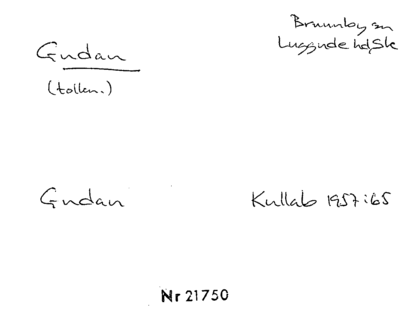 Gudan
(tolkn.)
Brunnby sn
Luggude hd, Sk
Gudan
Kullab 1957:65
Nr 21750